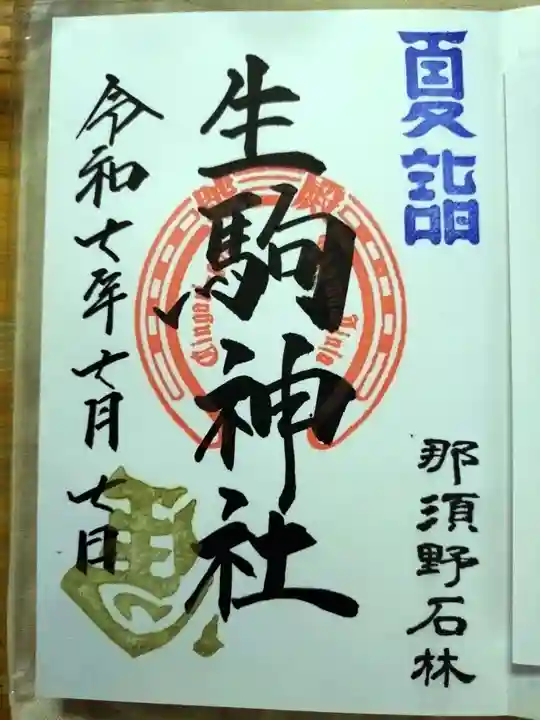 夏詣
那須野石林
生駒神社
令和七年七月七日